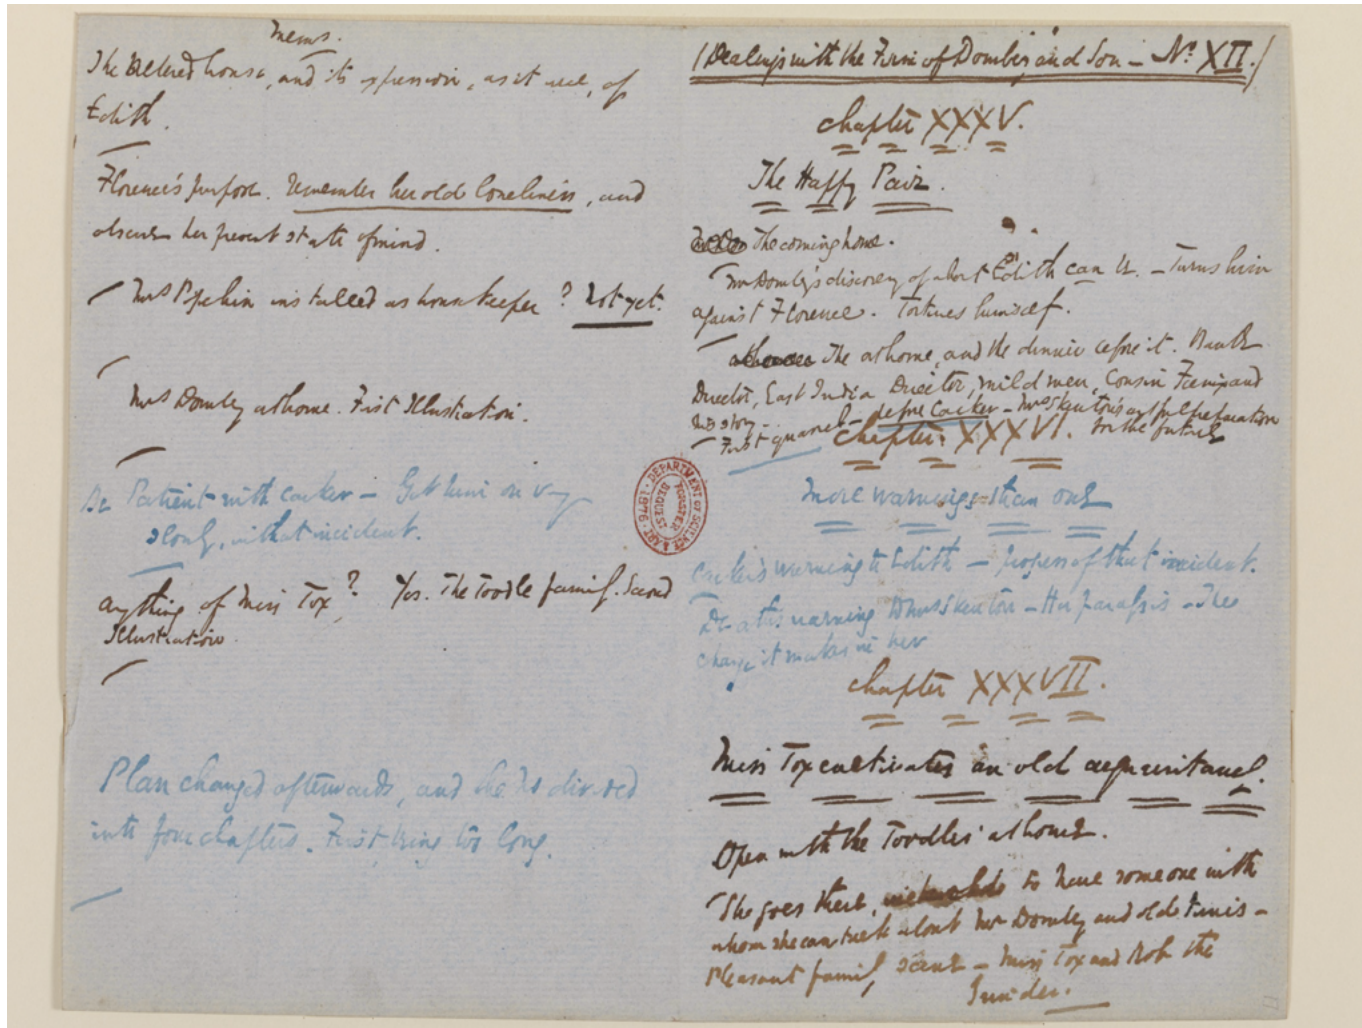 Mems.
The altered house, and its expression, as it were, of
Edith.
Florence's purpose. Remember her old loneliness, and
observe her present state of mind.
Mrs Pipchin installed as housekeeper? Not yet.
Mrs Dombey at home. First Illustration.
Be Patient with Carker – Get him on very
slowly, without incident.
Anything of Miss Tox? Yes. The Toodle family. Second
Illustration.
Plan changed afterwards, and the No divided
into four chapters. First being too long.
(Dealings with the Firm of Dombey and Son – No. XII.)
Chapter XXXV.
The Happy Pair.
The coming home.
Mr Dombey's discovery of what Edith can be. – Turns him
against Florence. Tortures himself.
The at home, and the dinner before it. Bank
Director, East India Director, mild men, Cousin Feenix and
his story –
First quarrel – before Carker – Mrs Skewton's artful preparation
for the future
Chapter XXXVI.
More warnings than one
Carker's warning to Edith – progress of that incident.
Death's warning to Mrs Skewton – Her paralysis – The
change it makes in her
Chapter XXXVII.
Miss Tox cultivates an old acquaintance.
Open with the Toodles at home.
She goes there, to have someone with
whom she can talk about Mr Dombey and old times –
Pleasant family scene – Miss Tox and Rob the
Grinder.
DEPARTMENT OF SCIENCE & ART · 1876 ·
FORSTER BEQUEST